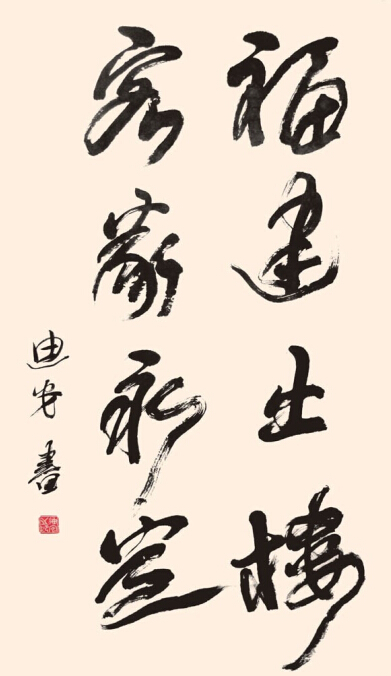 福建土樓
客家永定
迪安書